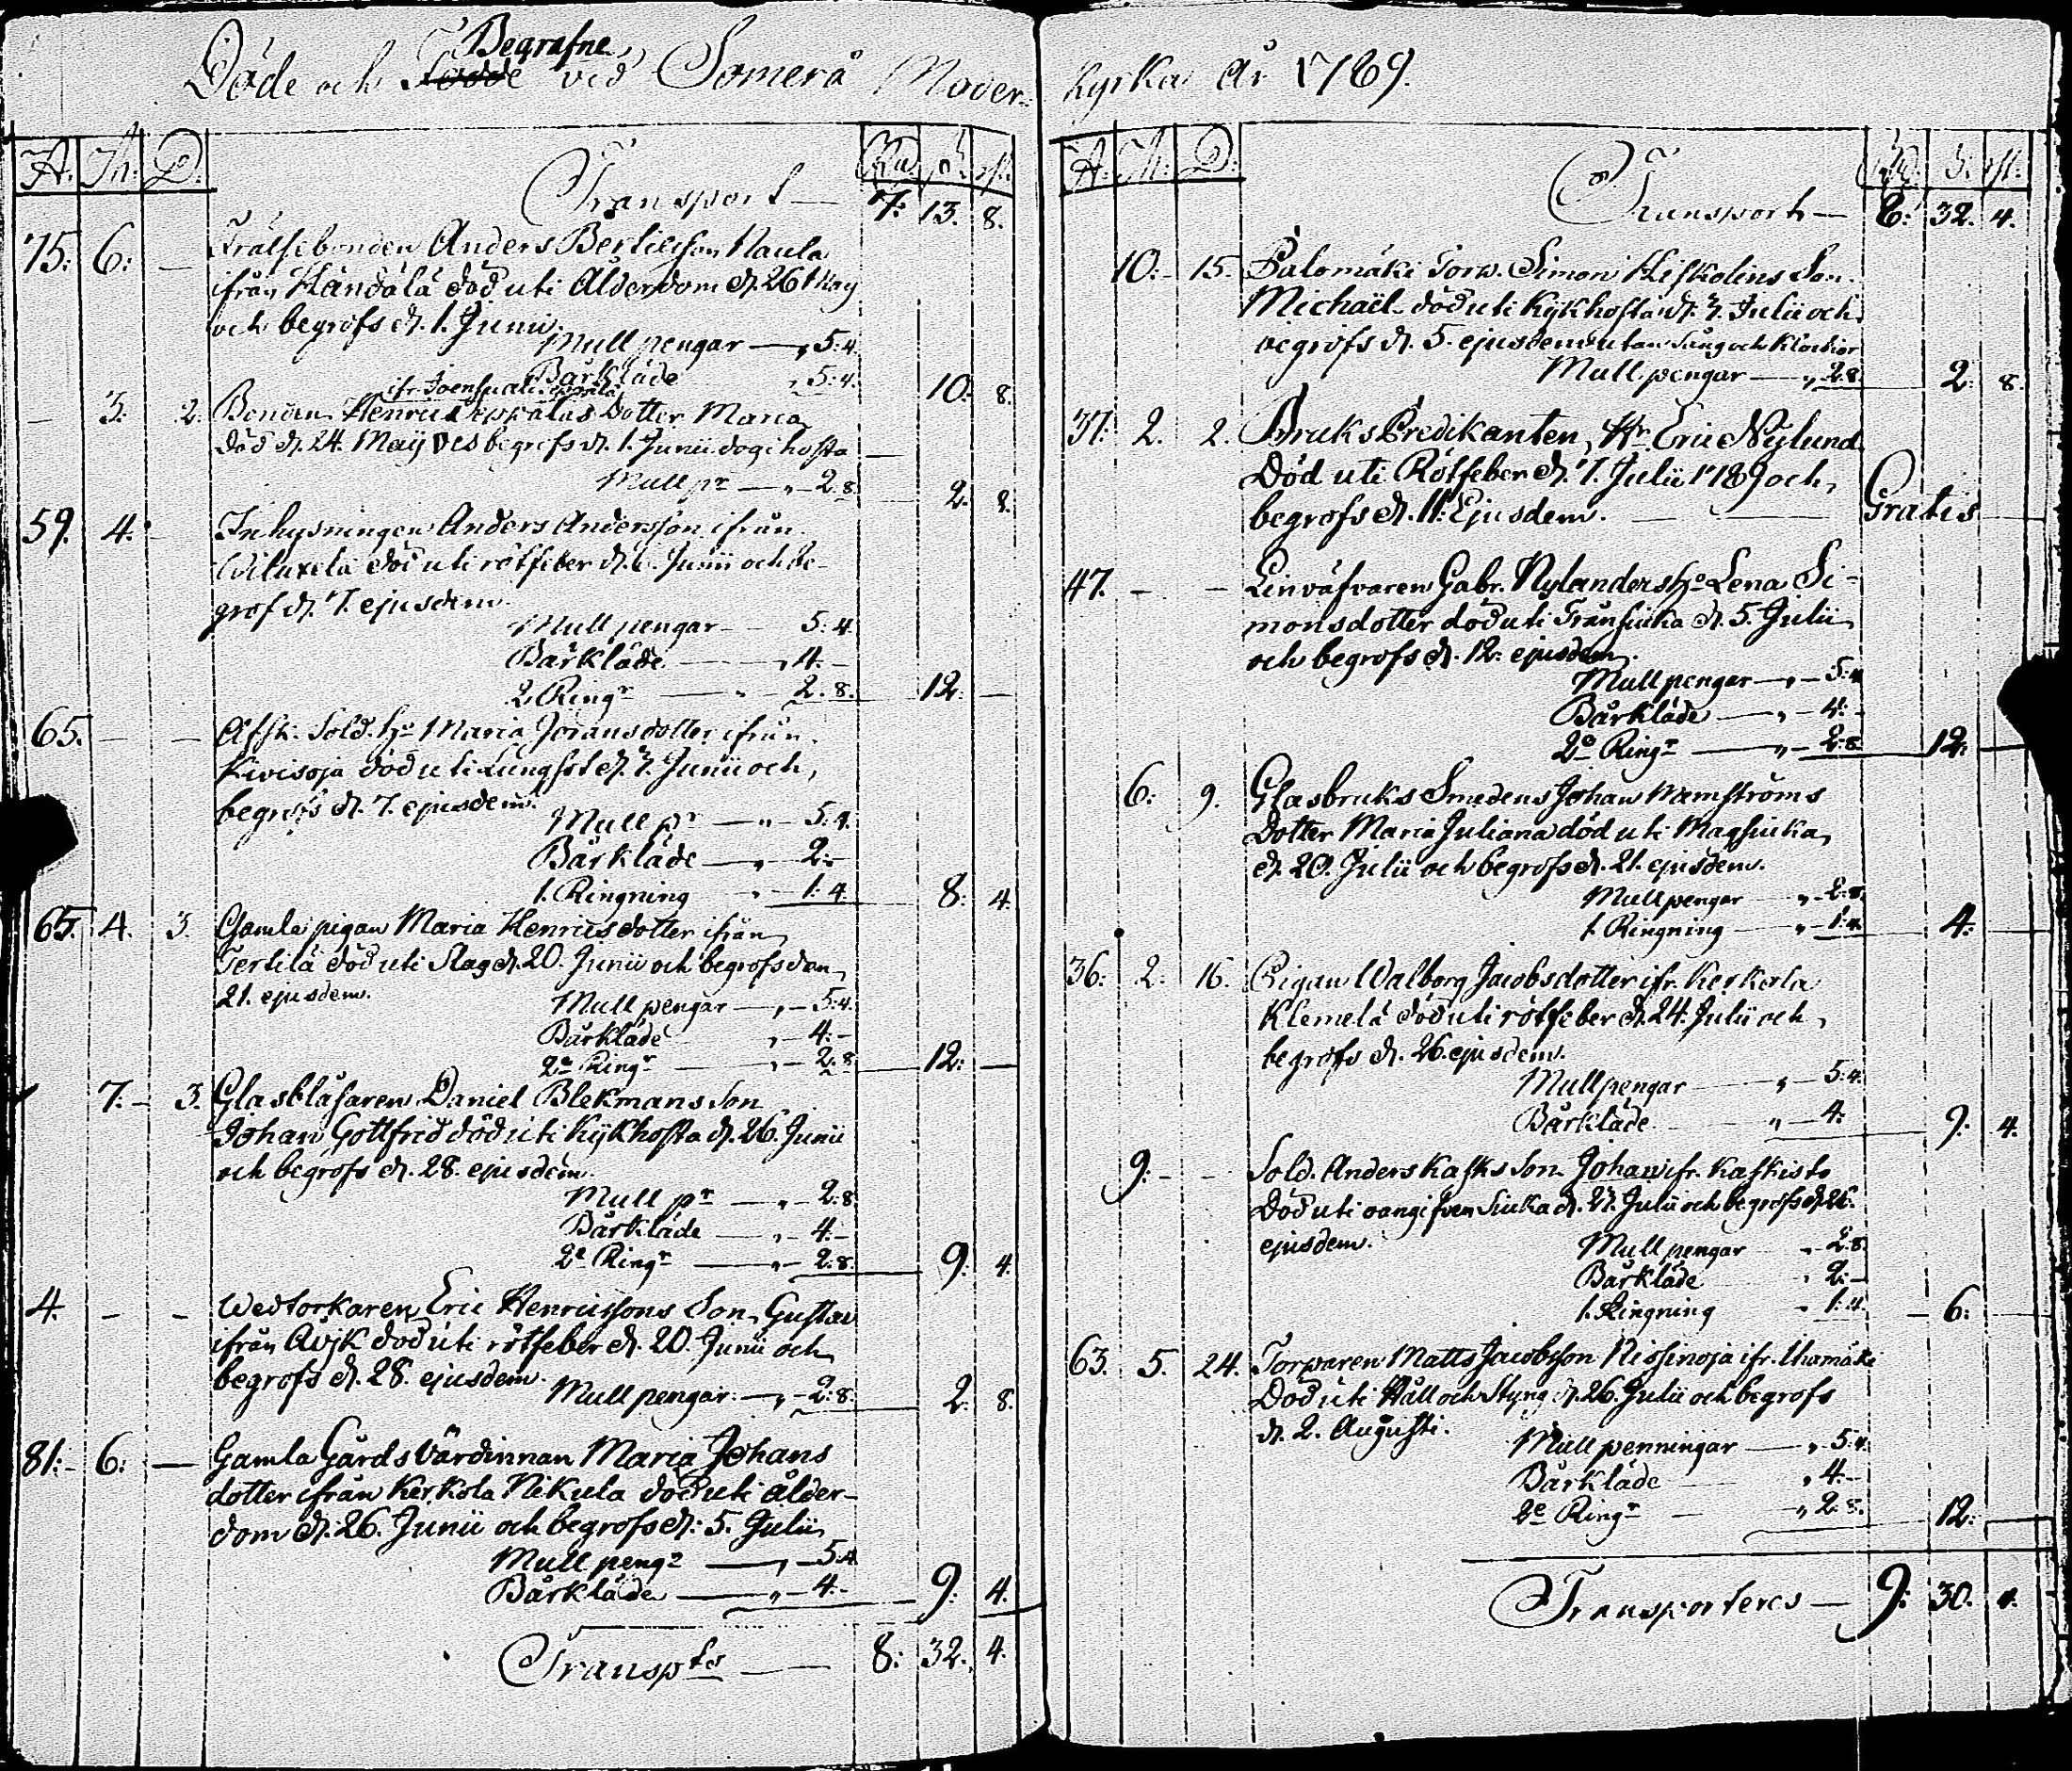 Döde och Födde Begrafne vid Somerå Moder-
A. M. D. Rd. s. rst.
Transport — 7: 13. 8.
75: 6: — Frälsebonden Anders Bertilsson Naula
ifrån Händälä död uti Ålderdom d. 26 May
och begrofs d. 1. Junii.
Mull pengar — „ 5:4.
Bårkläde „ 5:4. 10: 8.
ifr. Joensuu
— 3. 2. Bonden Henric dotter Maria
död d. 24. Maij begrofs d. 1. Junii hosta
Mull pr — „ — 2.8. 2. 8.
59. 4. Inhysningen Anders Andersson ifrån
död uti rötfeber d. Junii och be-
grof d. 7. ejusdem
Mull pengar — 5:4.
Bårkläde — „ 4. —
2 Ringr — „ — 2.8. 12. —
65. — — Afsk. Sold. Ho Maria Joransdotter ifrån
Kivisoja död uti Lungsot d. 3. Junii och
begrofs d. 7. ejusdem.
Mull pr — „ — 5:4.
Bårkläde — „ 2: —
1. Ringning „ — 1:4. 8: 4.
65. 4. 3. Gamla pigan Maria Henricsdotter ifrån
Tertilä död uti Slag d. 20. Junii och begrofs den
21. ejusdem.
Mull pengar — „ — 5:4.
Bårkläde „ — 4: —
2e Ringr — „ — 2:8 12: —
7. — 3. Glasblåsaren Daniel Blekmans Son
Johan Gottfrid död uti Kijkhosta d. 26. Junii
och begrofs d. 28. ejusdem.
Mull pr — „ — 2:8
Bårkläde — „ — 4: —
2e Ringr — „ — 2:8. 9: 4.
4. — — Wedtorkaren Eric Henricssons Son Gustav
ifrån Åvjk död uti rötfeber d. 20. Junii och
begrofs d. 28. ejusdem.
Mull pengar — „ — 2:8. 2. 8.
81: — 6: — Gamla Gårds Värdinnan Maria Johans
dotter ifrån Kerkola Nikula död uti ålder-
dom d. 26. Junii och begrofs d: 5. Julii
Mull pengr — „ — 5:4
Bårkläde — „ — 4: — 9: 4.
Transpts — 8: 32. 4.
kyrka År 1789.
A: M: D: Rd. s. rst.
Transport — 8: 32. 4.
10: — 15. Palomäki Torp. Simon Kiskolins Son
Michaël död uti Kijkhosta d. 3. Julii och
begrofs d. 5. ejusdem utan Sång och Klockor
Mull pengar — „ 2.8 2: 8.
37: 2. 2. Bruks Predikanten, Hr Eric Nylund
Död uti Rötfeber d. 7. Julii 1789 och
begrofs d. 11: Ejusdem. — Gratis
47. — — Linväfvaren Gabr. Nylanders Ho Lena Si-
monsdotter död uti Frånsiuka d. 5. Julii
och begrofs d. 12. ejusdem.
Mull pengar — „ — 5:4
Bårkläde — „ — 4: —
2e Ringr — „ — 2:8 12: —
6: 9. Glasbruks Smedens Johan Mamströms
Dotter Maria Juliana död uti Magsiuka
d. 20. Julii och begrofs d. 21. ejusdem.
Mull pengar — „ — 2:8.
1. Ringning — „ — 1:4. 4:
36: 2. 16. Pigan Walborg Jacobsdotter ifr. Kerkola
Klemelä död uti rötfeber d. 24. Julii och
begrofs d. 26. ejusdem.
Mull pengar — „ — 5:4.
Bårkläde „ — 4. 9: 4.
9: — — Sold. Anders Kasks Son Johan ifr. Kaskisto
Död uti oangifven Siuka d. 23. Julii och begrofs d. 26.
ejusdem.
Mull pengar „ — 2:8.
Bårkläde „ 2: —
1. Ringning „ 1:4. — 6:
63. 5. 24. Torparen Matts Jacobsson Nissinoja ifr.
Död uti Håll och Styng d. 26. Julii och begrofs
d. 2. Augusti.
Mull penningar — „ 5:4.
Bårkläde — „ 4: —
2e Ringr — „ 2:8. 12:
Transporteres — 9: 30. 4.